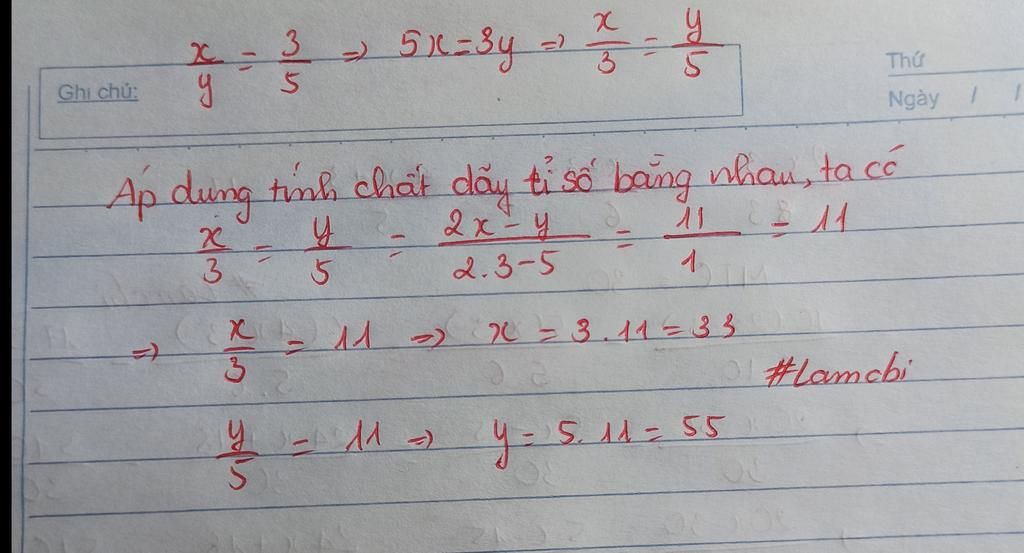 x/y = 3/5 => 5x = 3y => x/3 = y/5
Ghi chú:
Thứ
Ngày / /
Áp dung tính chất dãy tỉ số bằng nhau, ta có
x/3 = y/5 = (2x - y)/(2.3 - 5) = 11/1 = 11
=> x/3 = 11 => x = 3.11 = 33
#Lamcbi
y/5 = 11 => y = 5.11 = 55